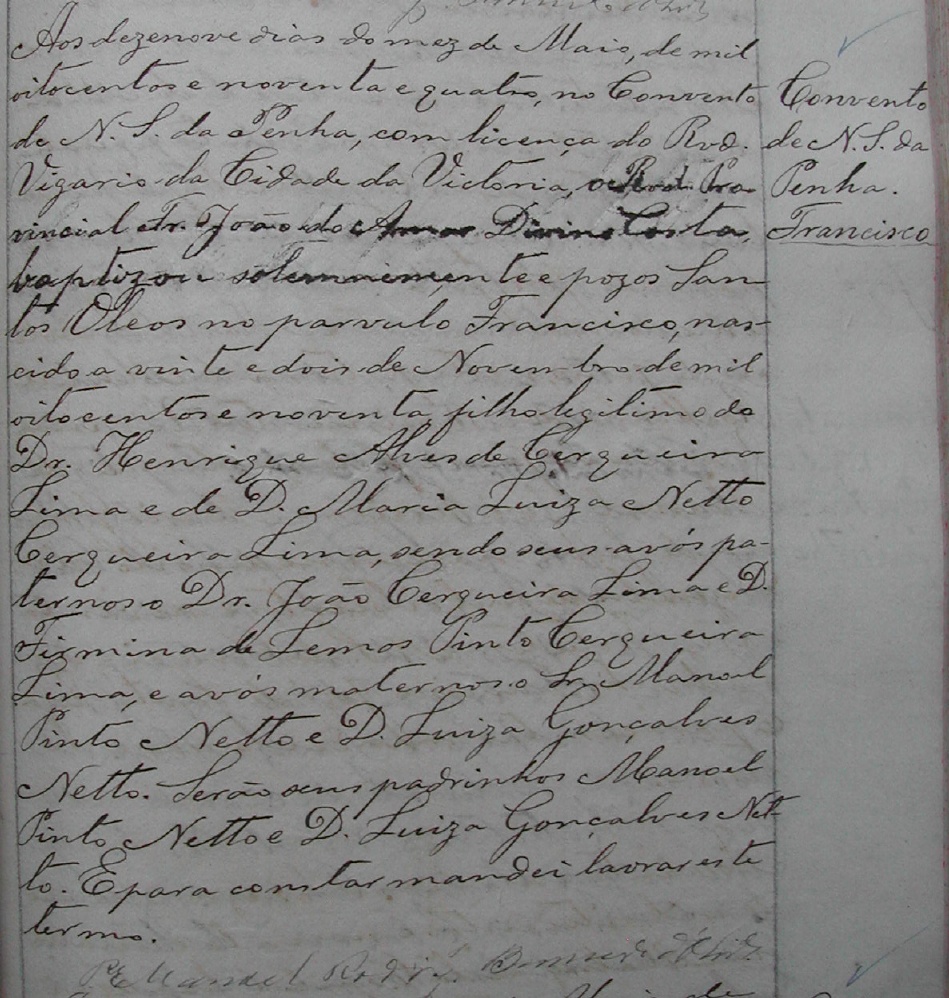 Aos dezenove dias do mez de Maio, de mil
oitocentos e noventa e quatro, no Convento
de N. S. da Penha, com licença do Rvd.
Vigario da Cidade da Victoria, o Rvd. Pro
vincial Fr. João do Amor Divino Costa,
baptizou solemnemente e poz os San
tos Oleos no parvulo Francisco, nas-
cido a vinte e dois de Novembro de mil
oitocentos e noventa, filho legitimo do
Dr. Henrique Alves de Cerqueira
Lima e de D. Maria Luiza Netto
Cerqueira Lima, sendo seus avós pa-
ternos o Dr. João Cerqueira Lima e D.
Firmina de Lemos Pinto Cerqueira
Lima, e avós maternos o Sr. Manoel
Pinto Netto e D. Luiza Gonçalves
Netto. Serão seus padrinhos Manoel
Pinto Netto e D. Luiza Gonçalves Net-
to. E para constar mandei lavrar este
termo.
Pe Manoel Rodrs
Convento
de N. S. da
Penha.
Francisco